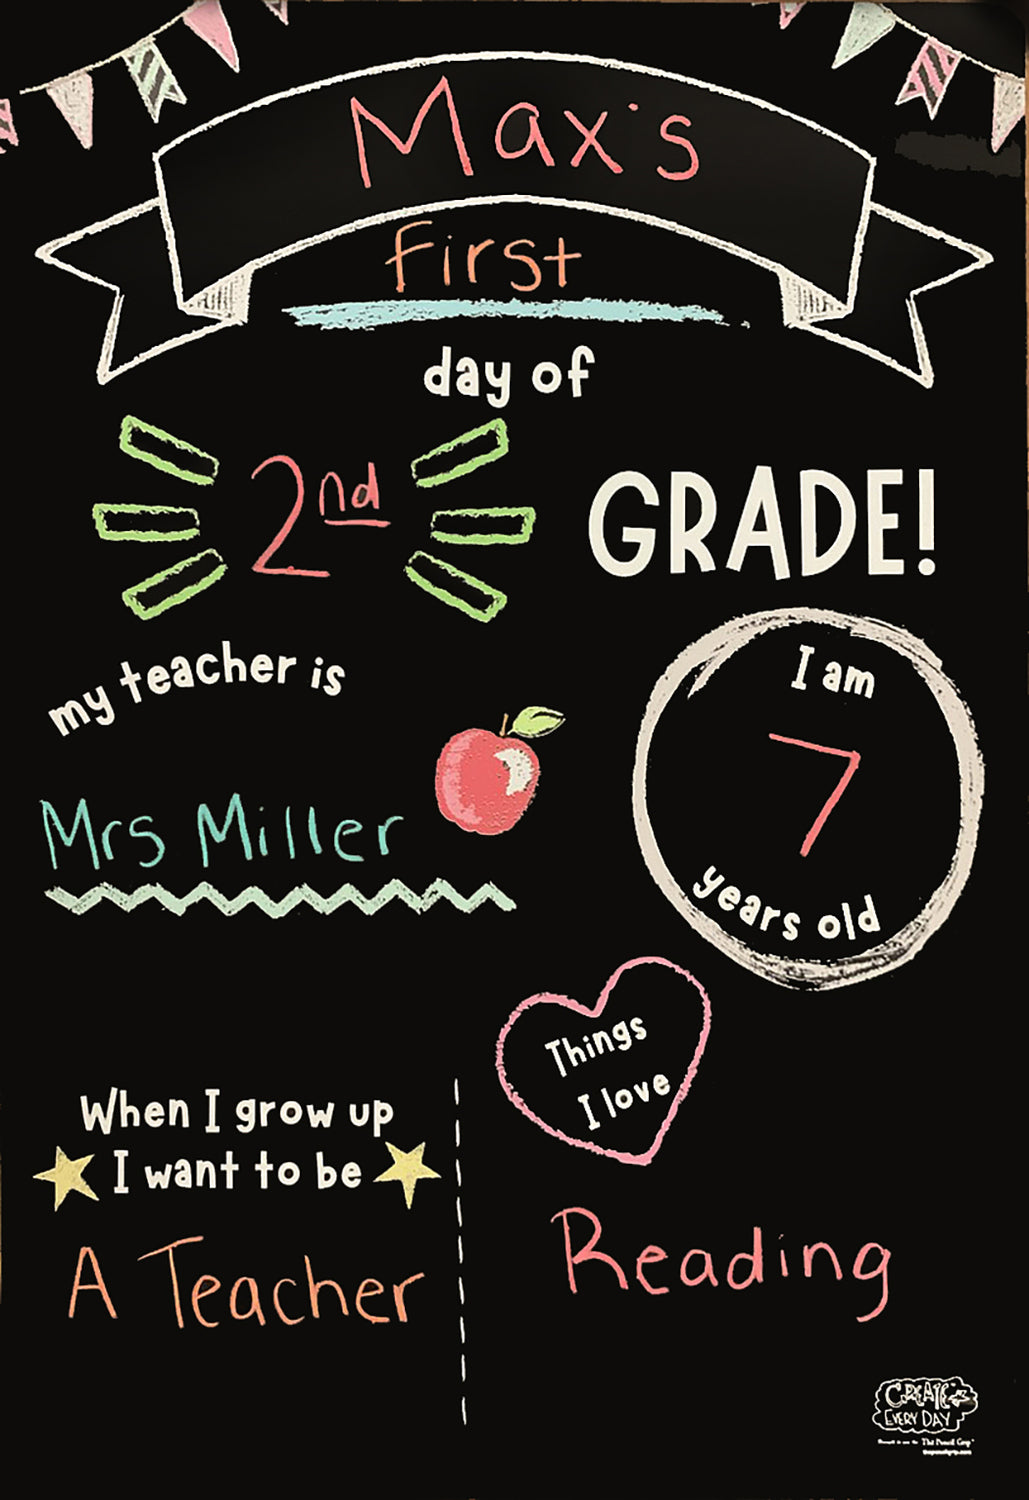 Max's
First
day of
2nd GRADE!
my teacher is
Mrs Miller
I am
7
years old
Things
I love
Reading
When I grow up
I want to be
A Teacher
CREATE
EVERY DAY
The Pencil Grip